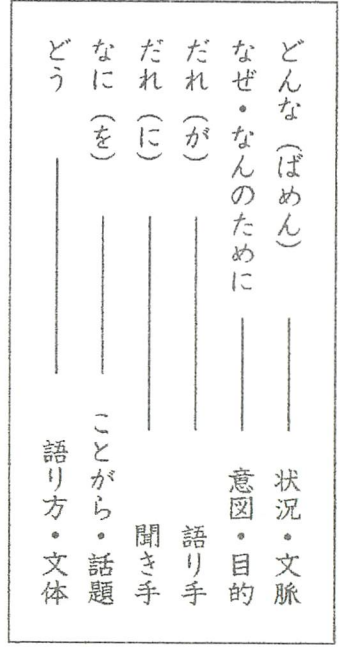 どんな（ばめん）――状況・文脈
なぜ・なんのために――意図・目的
だれ（が）――語り手
だれ（に）――聞き手
なに（を）――ことがら・話題
どう――語り方・文体